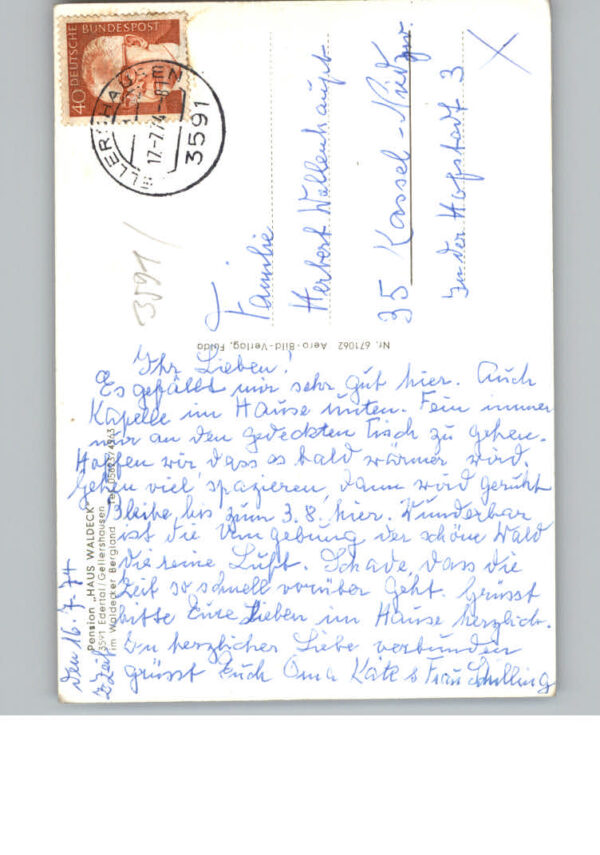 40 DEUTSCHE BUNDESPOST
GELLERSHAUSEN
17.-7.74
3591
3591
Familie
Herbert
35 Kassel-
In der Hofstadt 3
Nr. 671062 Aero-Bild-Verlag, Fulda
Pension „HAUS WALDECK"
3591 Edertal/Gellershausen
im Waldecker Bergland
den 16.7.74
z. Zeit
Ihr Lieben!
Es gefällt mir sehr gut hier. Auch
Kapelle im Hause unten. Fein immer
nur an den gedeckten Tisch zu gehen.
Hoffen wir, dass es bald wärmer wird.
Gehen viel spazieren, dann wird geruht
Bleibe bis zum 3.8. hier. Wunderbar
ist die Umgebung der schöne Wald
die reine Luft. Schade, dass die
Zeit so schnell vorüber geht. Grüsst
bitte Eure Lieben im Hause herzlich.
In herzlicher Liebe verbunden
grüsst Euch Oma Käte & Frau Schilling